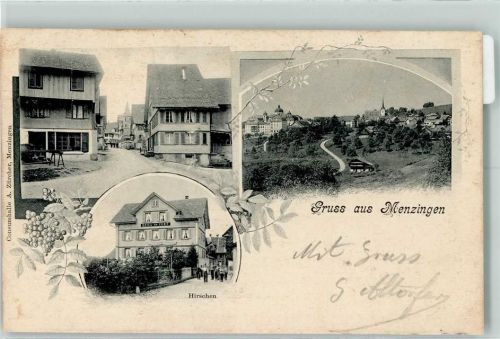 Consumhalle A. Zürcher, Menzingen
Gruss aus Menzingen
Hirschen
Mit Gruss